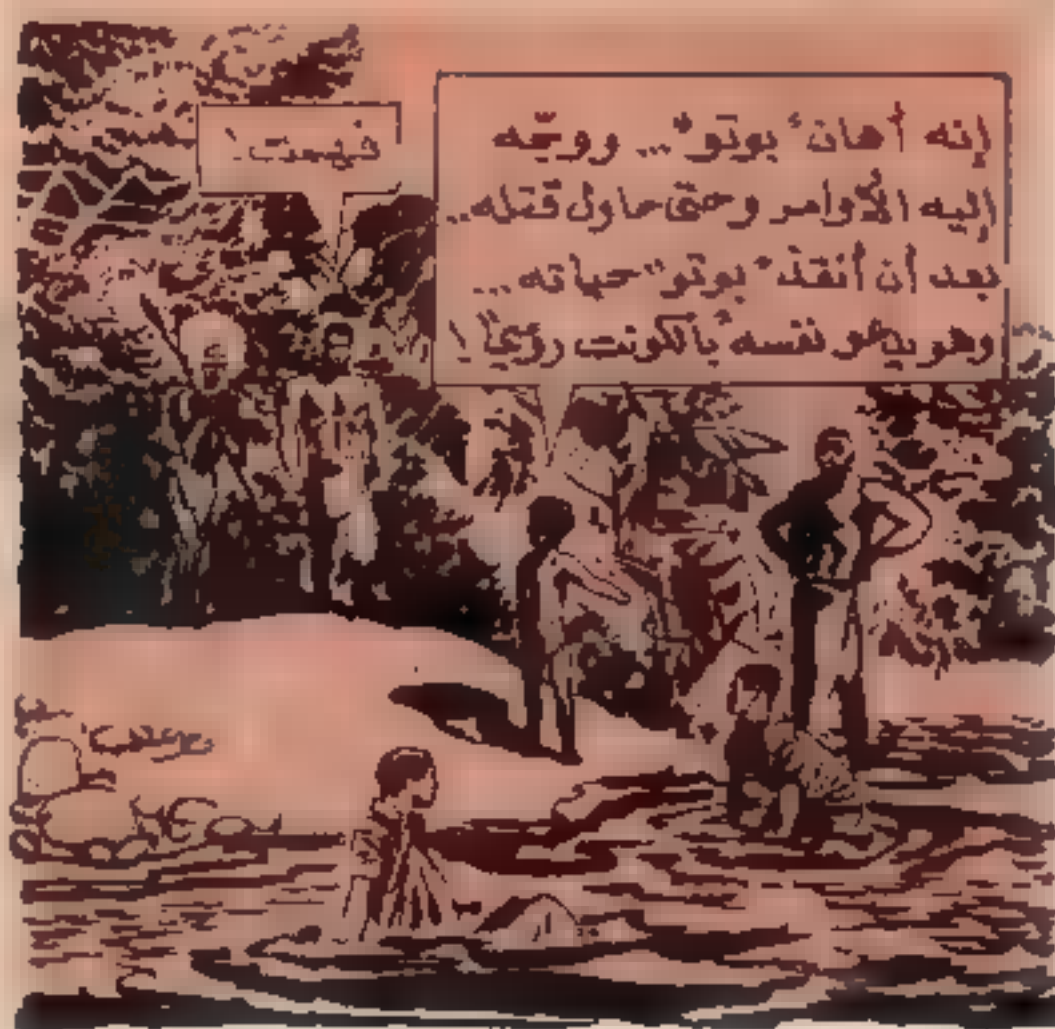 إنه أهان "بوتو"... ووجّه
إليه الأوامر وحتى حاول قتله..
بعد أن أنقذ "بوتو" حياته...
وهو يدعو نفسه بالكونت روّيّا!
فهمت!